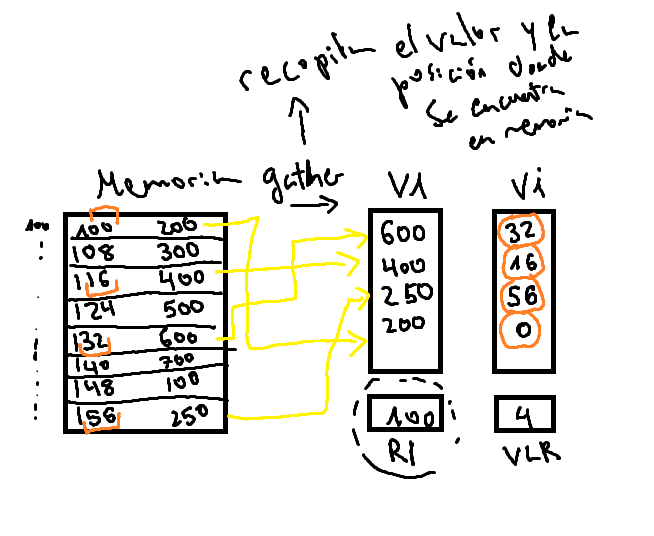 recopila el valor y la
posición donde
se encuentra
en memoria
Memoria gather V1 Vi
100
100 200
108 300
116 400
124 500
132 600
140 700
148 100
156 250
600
400
250
200
32
16
56
0
100
R1
4
VLR